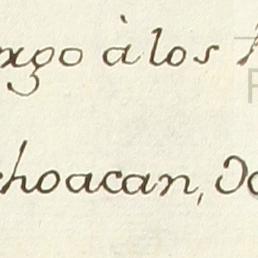 rgo à los
choacan, D